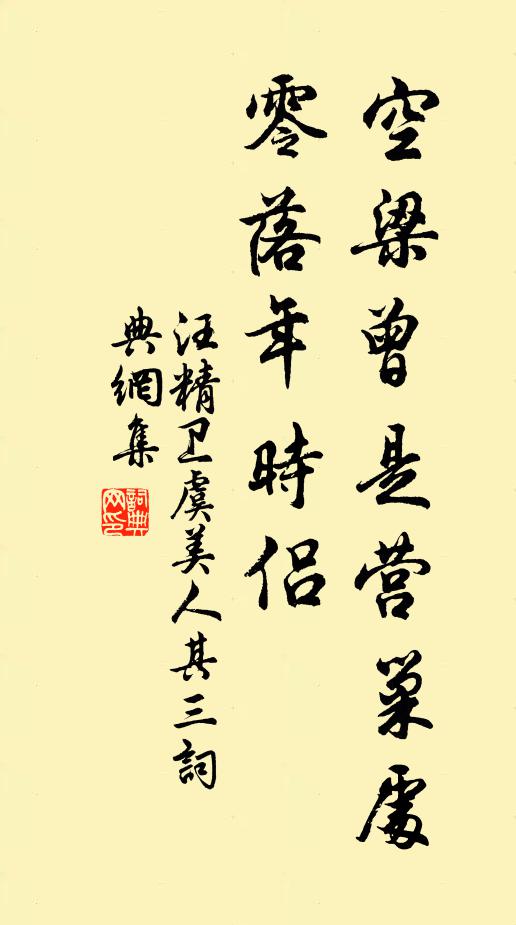 空梁曾是营巢處
零落年時侣
汪精卫虞美人其三詞
典網集
詞典网印